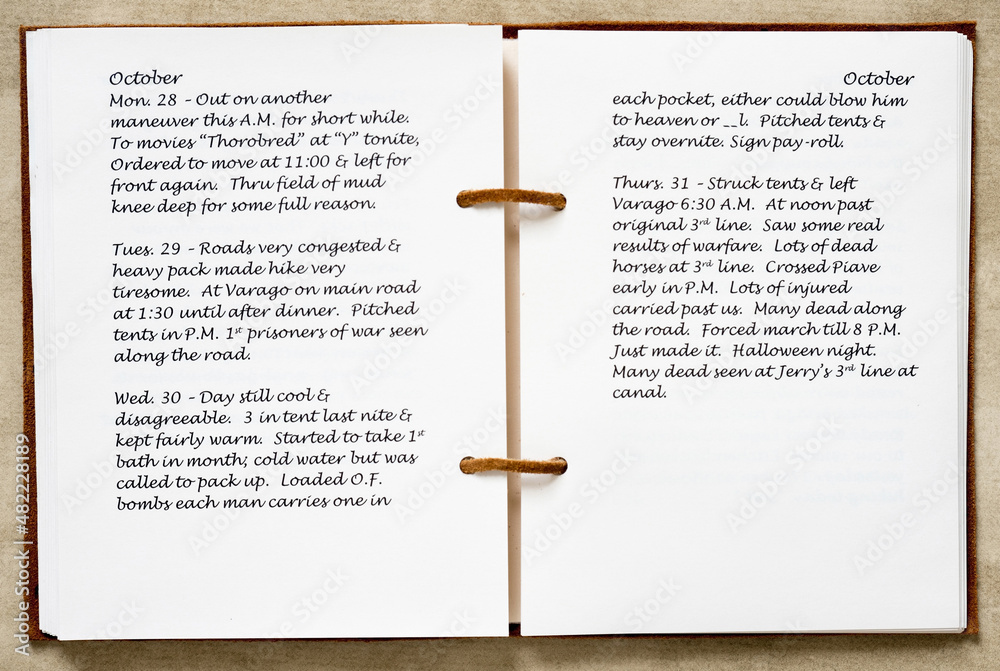 October
Mon. 28 – Out on another
maneuver this A.M. for short while.
To movies “Thorobred” at “Y” tonite,
Ordered to move at 11:00 & left for
front again. Thru field of mud
knee deep for some full reason.
Tues. 29 – Roads very congested &
heavy pack made hike very
tiresome. At Varago on main road
at 1:30 until after dinner. Pitched
tents in P.M. 1st prisoners of war seen
along the road.
Wed. 30 – Day still cool &
disagreeable. 3 in tent last nite &
kept fairly warm. Started to take 1st
bath in month; cold water but was
called to pack up. Loaded O.F.
bombs each man carries one in
October
each pocket, either could blow him
to heaven or __l. Pitched tents &
stay overnite. Sign pay-roll.
Thurs. 31 – Struck tents & left
Varago 6:30 A.M. At noon past
original 3rd line. Saw some real
results of warfare. Lots of dead
horses at 3rd line. Crossed Piave
early in P.M. Lots of injured
carried past us. Many dead along
the road. Forced march till 8 P.M.
Just made it. Halloween night.
Many dead seen at Jerry’s 3rd line at
canal.
Adobe Stock | #482228189